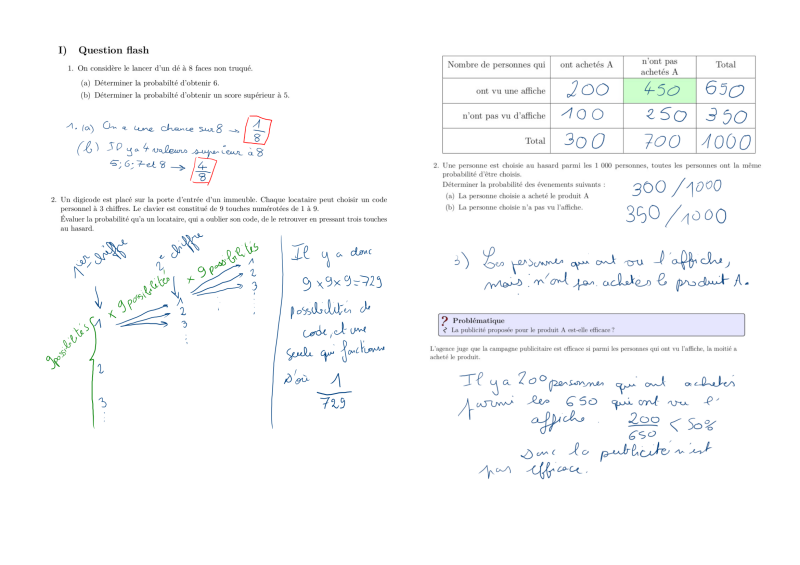 I) Question flash
1. On considère le lancer d'un dé à 8 faces non truqué.
(a) Déterminer la probabilté d'obtenir 6.
(b) Déterminer la probabilté d'obtenir un score supérieur à 5.
1. (a) On a une chance sur 8 → 1/8
(b) Il y a 4 valeurs superieur à 8
5; 6; 7 et 8 → 4/8
2. Un digicode est placé sur la porte d'entrée d'un immeuble. Chaque locataire peut choisir un code
personnel à 3 chiffres. Le clavier est constitué de 9 touches numérotées de 1 à 9.
Évaluer la probabilité qu'a un locataire, qui a oublier son code, de le retrouver en pressant trois touches
au hasard.
1er chiffre
2e chiffre
9 possibilités
× 9 possibilités
× 9 possibilités
1
2
3
⋮
1
2
3
⋮
1
2
3
⋮
Il y a donc
9 × 9 × 9 = 729
possibilités de
code, et une
seule qui fonctionne
D'où 1/729
Nombre de personnes qui ont achetés A n'ont pas achetés A Total
ont vu une affiche 200 450 650
n'ont pas vu d'affiche 100 250 350
Total 300 700 1000
2. Une personne est choisie au hasard parmi les 1 000 personnes, toutes les personnes ont la même
probabilité d'être choisis.
Déterminer la probabilité des évenements suivants :
(a) La personne choisie a acheté le produit A 300/1000
(b) La personne choisie n'a pas vu l'affiche. 350/1000
3) Les personnes qui ont vu l'affiche,
mais n'ont pas achetés le produit A.
? Problématique
La publicité proposée pour le produit A est-elle efficace ?
L'agence juge que la campagne publicitaire est efficace si parmi les personnes qui ont vu l'affiche, la moitié a
acheté le produit.
Il y a 200 personnes qui ont achetés
parmi les 650 qui ont vu l'
affiche. 200/650 < 50%
Donc la publicité n'est
pas efficace.